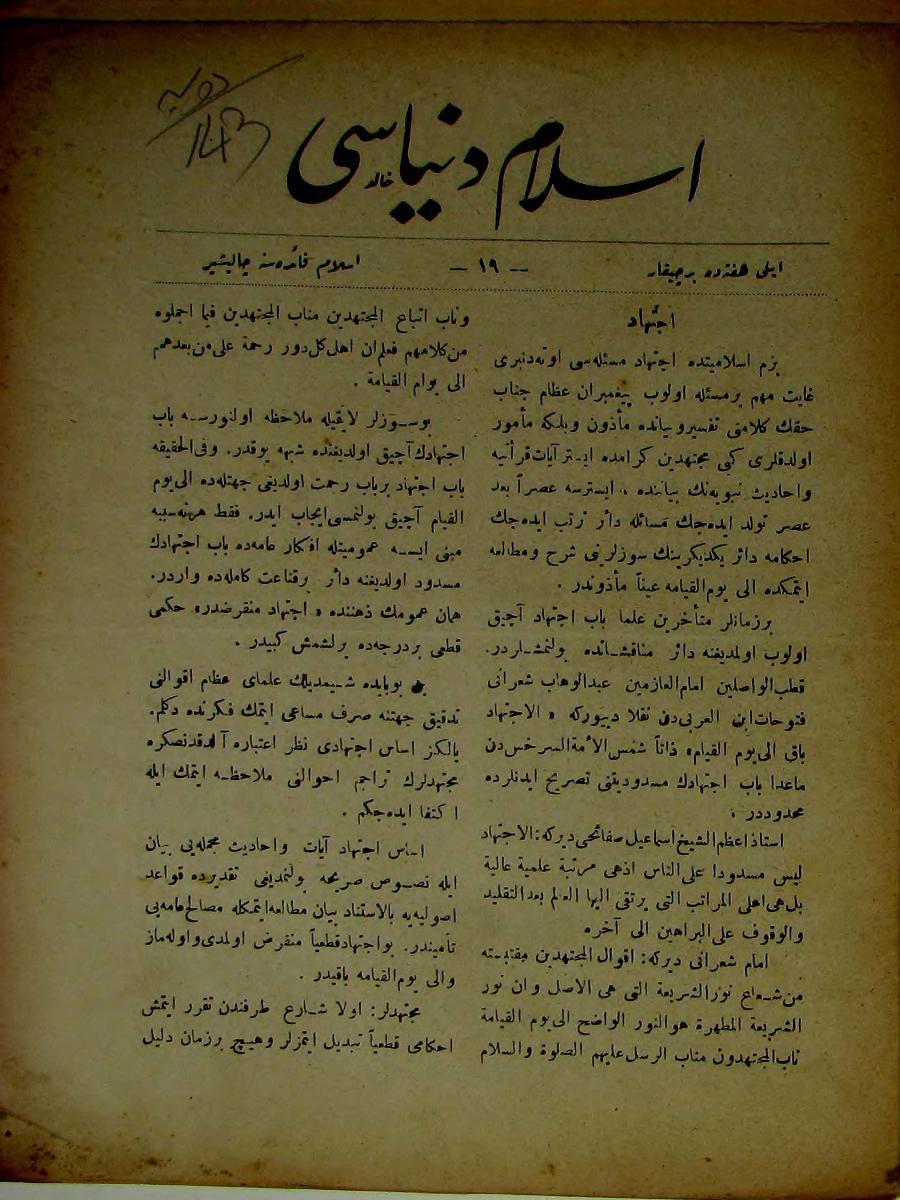 اسلام دنیاسی
خالد
ایلی هفته‌ده بر چیقار
— ١٩ —
اسلام فائده‌سنه چالیشیر
اجتهاد
بزم اسلامیتده اجتهاد مسئله‌سی اوته‌دنبری
غایت مهم بر مسئله اولوب پیغمبران عظام جناب
حقك كلامنی تفسیر و بیانده مأذون وبلکه مأمور
اولدقلری کبی مجتهدین کرامده ایستر آیات قرآنیه
واحادیث نبویه‌نك بیاننده ، ایسترسه عصراً بعد
عصر تولد ایده‌جك مسائله دائر ترتب ایده‌جك
احکامه دائر یکدیکرینك سوزلرنی شرح ومطالعه
ایتمکده الی یوم القیامه عیناً مأذوندر .
بر زمانلر متأخرین علما باب اجتهاد آچیق
اولوب اولمدیغنه دائر مناقشـاتده بولنمشـلردر.
قطب الواصلین امام العازمین عبدالوهاب شعرانی
فتوحات ابن العربی‌دن نقلا دییورکه « الاجتهاد
باق الی یوم القیام» ذاتاً شمس الأئمة السرخسی‌دن
ماعدا باب اجتهادك مسدودیتنی تصریح ایدنلرده
محدوددر .
استاذ اعظم الشیخ اسماعیل صفائحی دیرکه: الاجتهاد
لیس مسدودا علی الناس اذهی مرتبة علمیة عالیة
بل هی اعلی المراتب التی یرتقی الیها العالم بعد التقلید
والوقوف علی البراهین الی آخره
امام شعرانی دیرکه: اقوال المجتهدین مقتبـسته
من شـعاع نور الشریعة التی هی الاصل وان نور
الشریعة المطهرة هو النور الواضح الی یوم القیامة
ناب المجتهدون مناب الرسل علیهم الصلوة والسلام
وناب اتباع المجتهدین مناب المجتهدین فیما اجملوه
من کلامهم فعلم ان اهل کل دور رحمة علی من بعدهم
الی یوام القیامة .
بوسـوزلر لایقیله ملاحظه اولنورسـه باب
اجتهادك آچیق اولدیغنده شبهه یوقدر. وفی الحقیقه
باب اجتهاد بر باب رحمت اولدیغی جهتله‌ده الی یوم
القیام آچیق بولنمسی ایجاب ایدر. فقط هر نه سببه
مبنی ایسـه عمومیتله افکار عامه‌ده باب اجتهادك
مسدود اولدیغنه دائر بر قناعت کامله‌ده واردر.
همان عمومك ذهننده « اجتهاد منقرضدر» حکمی
قطعی بر درجه‌ده یرلشمش کبیدر .
بوبابده شـیمدیلك علمای عظام اقوالنی
تدقیق جهتنه صرف مساعی ایتمك فکرنده دکلم.
یالکز اساس اجتهادی نظر اعتباره آلدقدنصکره
مجتهدلرك تراجم احوالنی ملاحظـه ایتمك ایله
اکتفا ایده‌جکم .
اسـاس اجتهاد آیات واحادیث مجمله‌یی بیان
ایله نصـوص صریحه بولنمدیغی تقدیرده قواعد
اصولیه‌یه بالاستناد بیان مطالعه ایتمکله مصالح عامه‌یی
تأمیندر. بو اجتهاد قطعیاً منقرض اولمدی و اوله‌ماز
والی یوم القیامه باقیدر .
مجتهدلر: اولا شـارع طرفندن تقرر ایتمش
احکامی قطعیاً تبدیل ایتمزلر وهیـچ بر زمان دلیل